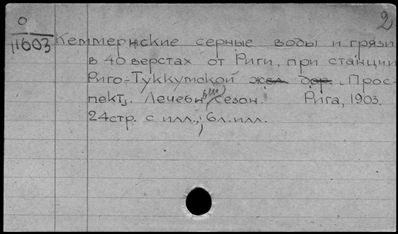 2
0
11603
Кеммернские серные воды и грязи
в 40 верстах от Риги, при станции
Риго-Туккумской жел дор. Прос-
пект. Лечебн сезон. Рига, 1903.
24стр. с илл., 6л. илл.